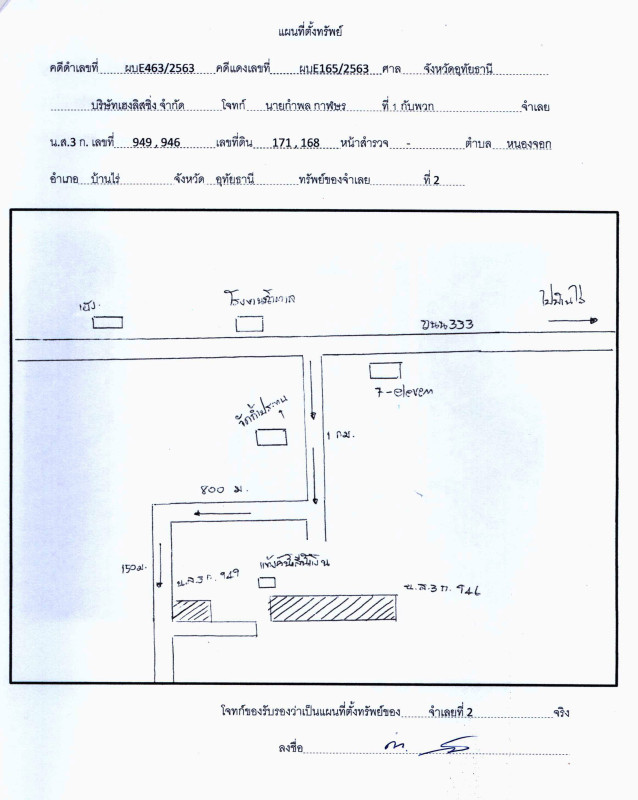 แผนที่ตั้งทรัพย์
คดีดำเลขที่ ผบE463/2563 คดีแดงเลขที่ ผบE165/2563 ศาล จังหวัดอุทัยธานี
บริษัทเฮงลิสซิ่ง จำกัด โจทก์ นายกำพล กาฬษร ที่ 1 กับพวก จำเลย
น.ส.3 ก. เลขที่ 949 , 946 เลขที่ดิน 171 , 168 หน้าสำรวจ - ตำบล หนองจอก
อำเภอ บ้านไร่ จังหวัด อุทัยธานี ทรัพย์ของจำเลย ที่ 2
โรงพยาบาล
ไปบ้านไร่
ถนน 333
7-eleven
1 กม.
800 ม.
150 ม.
น.ส.3 ก. 949
น.ส.3 ก. 946
โจทก์ขอรับรองว่าเป็นแผนที่ตั้งทรัพย์ของ จำเลยที่ 2 จริง
ลงชื่อ